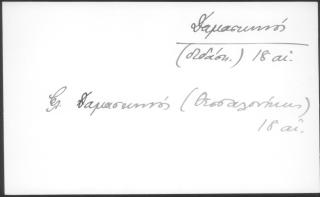 Δαμασκηνός
(διδάσκ.) 18 αἰ.
Δαμασκηνός (Θεσσαλονίκης)
18 αἰ.